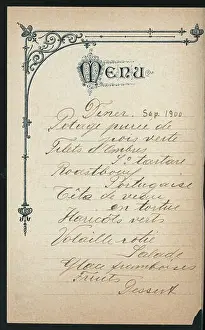 MENU
Diner. Sep. 1900
Potage purée de
pois verts
Filets d'Ombres
Sce tartare
Roastboeuf
Portugaise
Tête de veau
en tortue
Haricots verts
Volaille rotie
Salade
Glace framboises
Fruits
Dessert